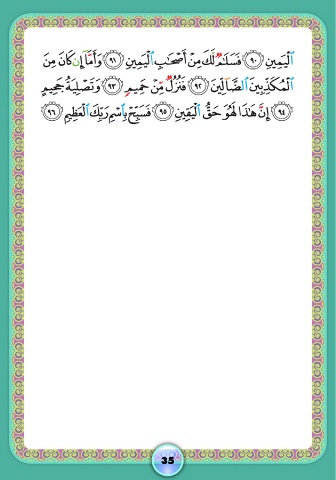 ٱلۡيَمِينِ ﴿٩٠﴾ فَسَلَٰمٞ لَّكَ مِنۡ أَصۡحَٰبِ ٱلۡيَمِينِ ﴿٩١﴾ وَأَمَّآ إِن كَانَ مِنَ
ٱلۡمُكَذِّبِينَ ٱلضَّآلِّينَ ﴿٩٢﴾ فَنُزُلٞ مِّنۡ حَمِيمٖ ﴿٩٣﴾ وَتَصۡلِيَةُ جَحِيمٍ
﴿٩٤﴾ إِنَّ هَٰذَا لَهُوَ حَقُّ ٱلۡيَقِينِ ﴿٩٥﴾ فَسَبِّحۡ بِٱسۡمِ رَبِّكَ ٱلۡعَظِيمِ ﴿٩٦﴾
35